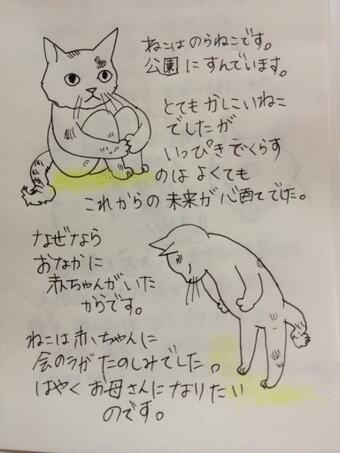 ねこは のらねこです。
公園に すんでいます。
とても かしこいねこ
でしたが
いっぴきでくらす
のは よくても
これからの 未来が心配でした。
なぜなら
おなかに
赤ちゃんがいた
からです。
ねこは赤ちゃんに
会のうがたのしみでした。
はやく お母さんになりたい
のです。